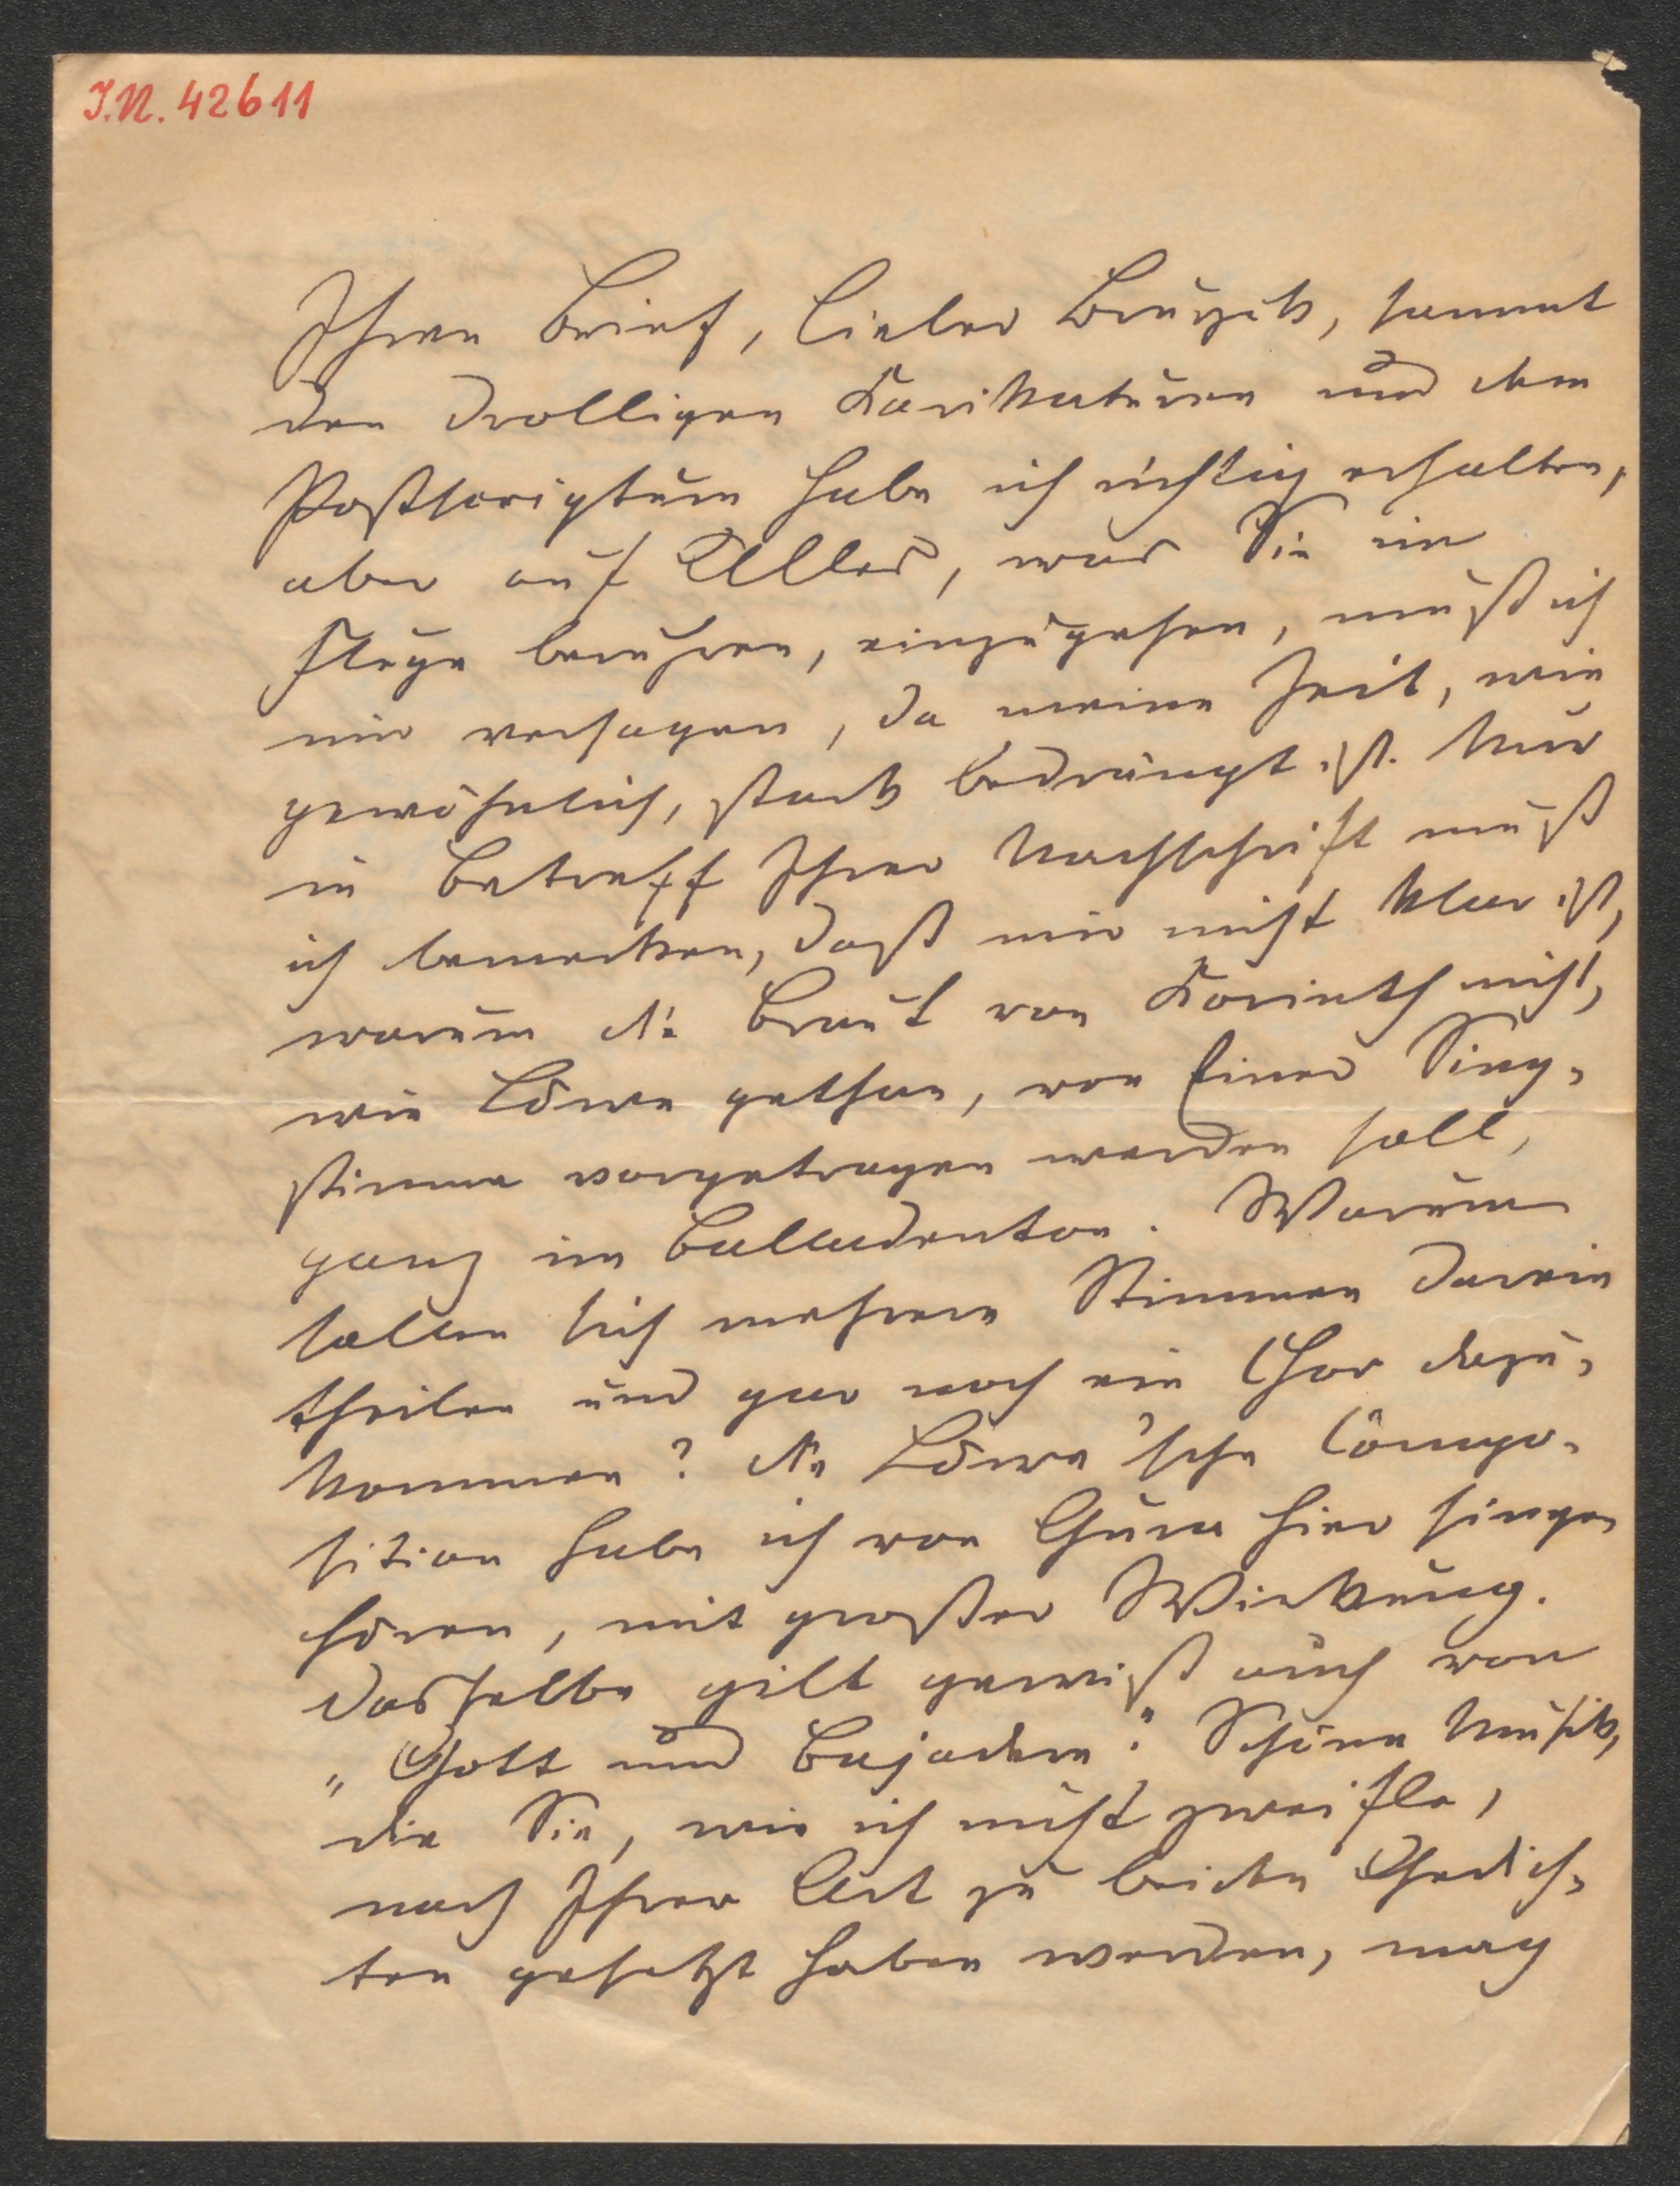 I.N. 42611
Ihren Brief, lieber Brugk, sammt
den drolligen Karikaturen und dem
Postscriptum habe ich richtig erhalten,
aber auf Alles, was Sie im
Fluge berühren, einzugehen, muß ich
mir versagen, da meine Zeit, wie
gewöhnlich, stark bedrängt ist. Nur
in Betreff Ihrer Nachschrift muß
ich bemerken, daß mir nicht klar ist,
warum die Braut von Korinth nicht,
wie Löwe gethan, von Einer Sing-
stimme vorgetragen werden soll,
ganz im Balladenton. Warum
sollen sich mehrere Stimmen darein
theilen und gar noch ein Chor dazu-
kommen? Die Löwe'sche Compo-
sition habe ich von Gura hier singen
hören, mit großer Wirkung.
Dasselbe gilt gewiß auch von
„Gott und Bajadere". Schöne Musik,
die Sie, wie ich nicht zweifle,
nach Ihrer Art zu beiden Gedich-
ten gesetzt haben werden, mag